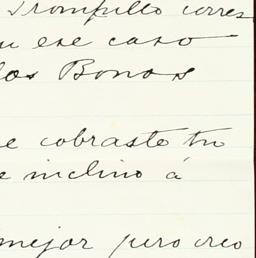 Trompillo corres
en ese caso
los Bonos
e cobraste tu
e inclino á
mejor pero creo